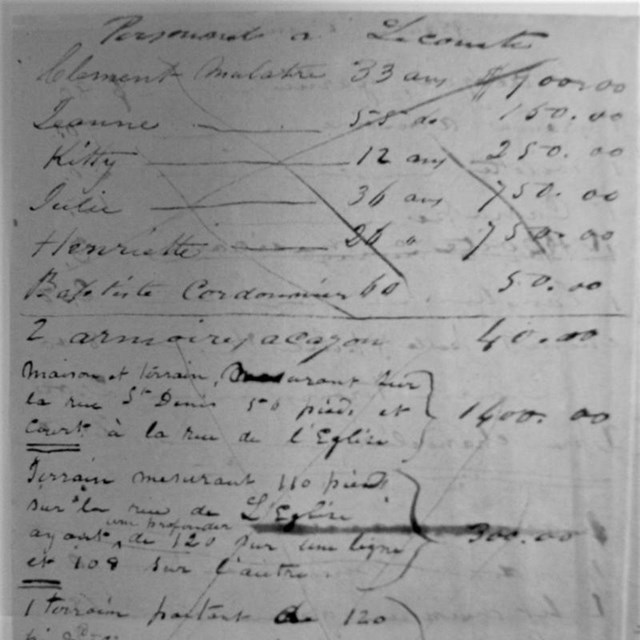 Personnel a Lecomte
Clement Mulatre 33 ans $1,000.00
Jeanne 55 do 150.00
Kitty 12 ans 250.00
Julie 36 ans 750.00
Henriette 26 " 750.00
Baptiste Cordonnier 60 50.00
2 armoires acajou 40.00
Maison et terrain, mesurant sur
la rue St Denis 50 pieds et
court à la rue de l'Eglise 1400.00
Terrain mesurant 110 pieds
sur la rue de L'Eglise
ayant une profondeur de 121 sur une ligne 300.00
et 109 sur l'autre
1 terrain partant de 120